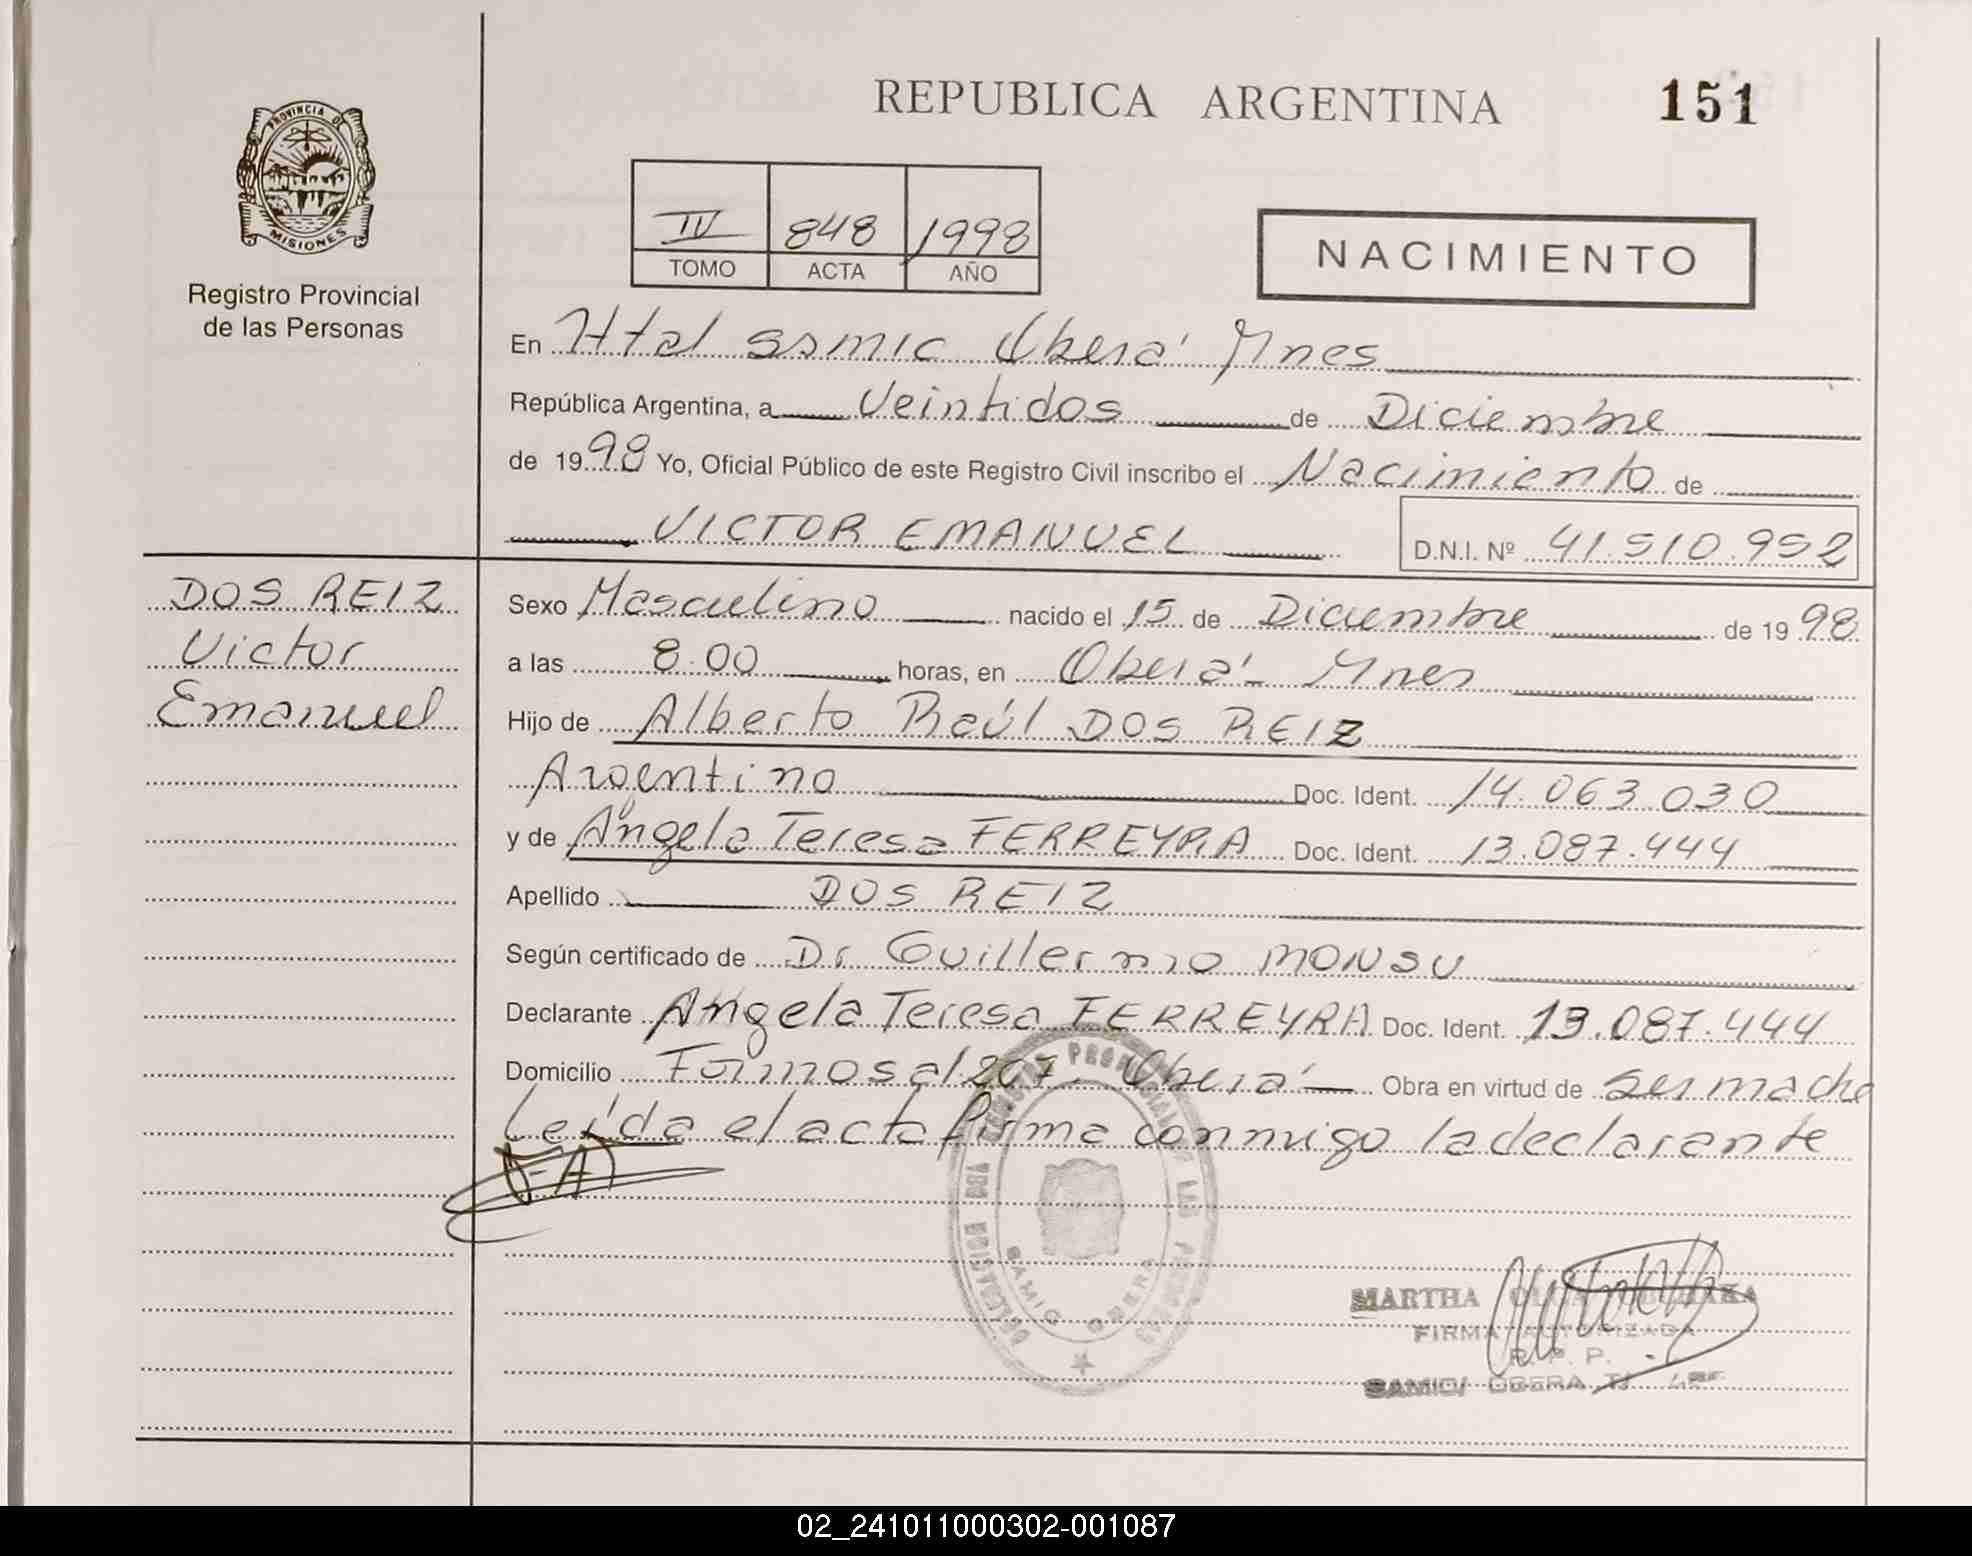 REPUBLICA ARGENTINA
151
PROVINCIA DE
MISIONES
Registro Provincial
de las Personas
IV 848 1998
TOMO ACTA AÑO
NACIMIENTO
En Htal SSMIC Oberá Mnes
República Argentina, a Veintidos de Diciembre
de 1998 Yo, Oficial Público de este Registro Civil inscribo el Nacimiento de
VICTOR EMANUEL D.N.I. Nº 41.510.952
DOS REIZ
Victor
Emanuel
Sexo Masculino nacido el 15 de Diciembre de 1998
a las 8.00 horas, en Oberá - Mnes
Hijo de Alberto Raúl DOS REIZ
Argentino Doc. Ident. 14.063.030
y de Angela Teresa FERREYRA Doc. Ident. 13.087.444
Apellido DOS REIZ
Según certificado de Dr Guillermo MONSU
Declarante Angela Teresa FERREYRA Doc. Ident. 13.087.444
Domicilio Formosa 1207 Oberá Obra en virtud de ser madre
Leída el acta firma conmigo la declarante
MARTHA
FIRMA AUTORIZADA
R. P. P.
SAMIC/ OBERA
02_241011000302-001087